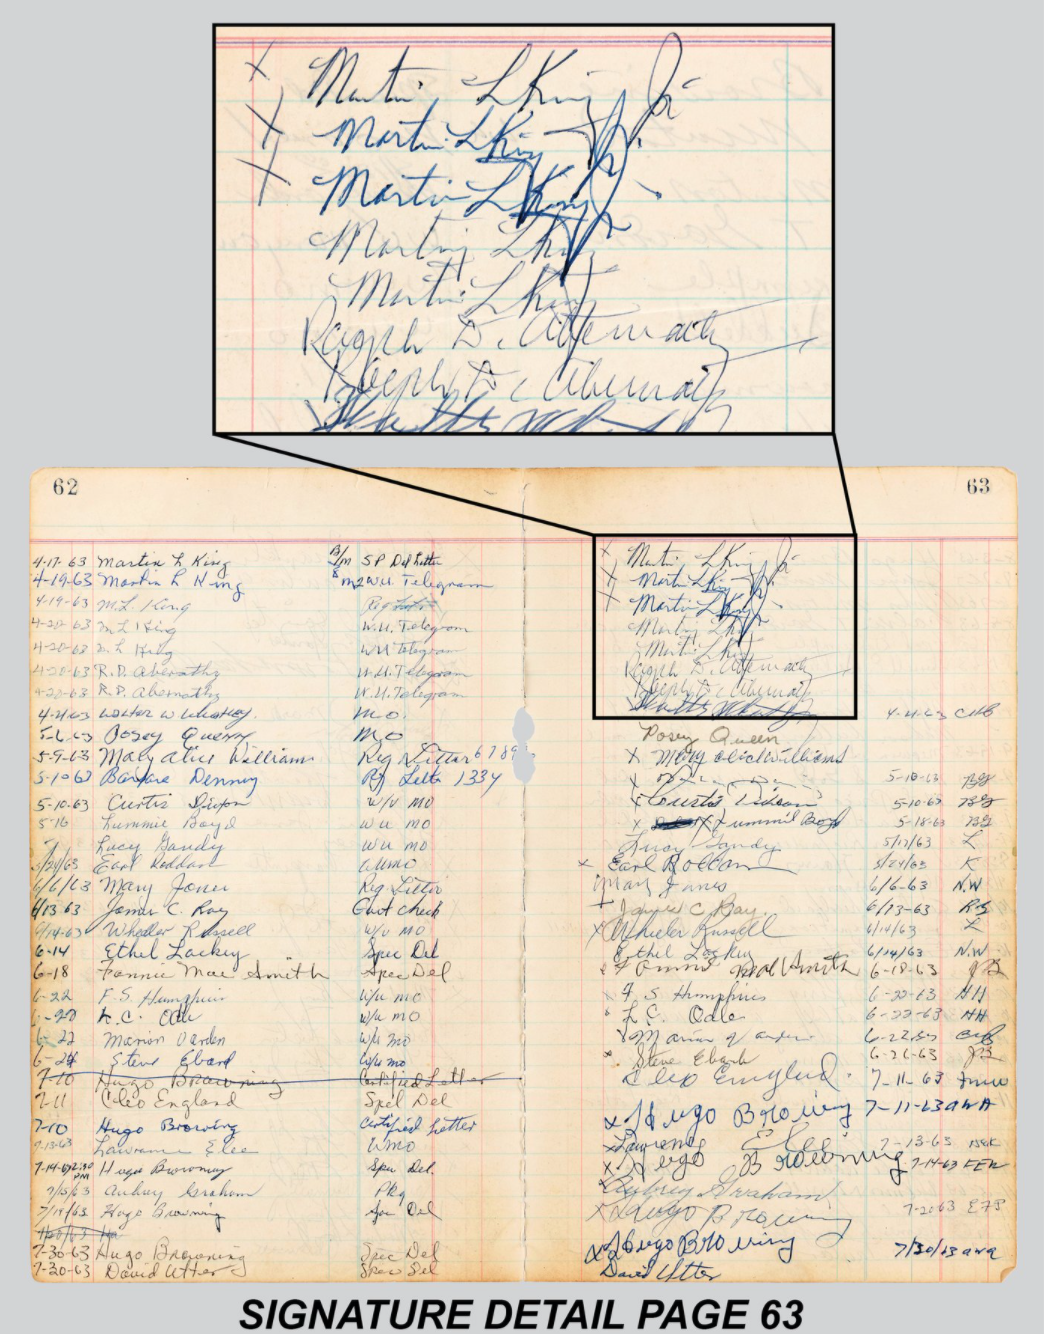 Martin L King Jr
Martin L King Jr
Martin L King Jr
Martin L King
Martin L King
Ralph D. Abernathy
Ralph D. Abernathy
62
63
4-17-63 Martin L King B/m SP Del Letter X Martin L King Jr
4-19-63 Martin L King W.U. Telegram X Martin L King Jr
4-19-63 M.L. King Reg Letter X Martin L King Jr
4-20-63 M L King W.U. Telegram Martin L King
4-20-63 M. L King W.U Telegram Martin L King
4-20-63 R.D. Abernathy W.U. Telegram Ralph D. Abernathy
4-20-63 R.D. Abernathy W.U. Telegram Ralph D. Abernathy
4-21-63 Walter W M.O.
5-6-63 Posey Queen M O Posey Queen
5-9-63 Mary Alice Williams Reg Letter X Mary Alice Williams
5-10-63 Barbara Denning Reg Letter 1334 5-10-63
5-10-63 Curtis Dixon W/U MO Curtis Dixon 5-10-63
5-16 Lummie Boyd W U MO X Lummie Boyd 5-18-63
Lucy Gandy W U MO Lucy Gandy 5/17/63 L
5/24/63 Earl W U MO X Earl 5/24/63 K
6/6/63 Mary Jones Reg Letter Mary Jones 6/6-63 N.W
6/13 63 James C. Ray Govt check James C Ray 6/13-63
6/14-63 Wheeler Russell W/U MO X Wheeler Russell 6/14/63 L
6-14 Ethel Lackey Spec Del Ethel Lackey 6/14/63 N.W
6-18 Fannie Mae Smith Spec Del Fannie Mae Smith 6-18-63
6-22 F.S. Humphries W/U MO F. S Humphries 6-22-63 HH
6-22 L.C. Odle W/U MO L.C. Odle 6-22-63 HH
6-22 Marion Varden W/U MO Marion
6-24 Steve Ebard W/U MO Steve Ebard 6-26-63
7-10 Hugo Browning Certified Letter
7-11 Cleo England Spcl Del Cleo England. 7-11-63
7-10 Hugo Browning Certified Letter X Hugo Browning 7-11-63 AWA
7-13-63 Lawrence Elee W MO X Lawrence Elee 7-13-63
7-14-63 2:30 PM Hugo Browning Spec Del. X Hugo Browning 7-14-63 FEW
7/15/63 Aubrey Graham Pkg Aubrey Graham
7/19/63 Hugo Browning Spec Del X Hugo Browning 7-20-63
7-30-63 Hugo Browning Spec Del X Hugo Browning 7/30/63 awa
7-30-63 David Utter Spec Del David Utter
SIGNATURE DETAIL PAGE 63